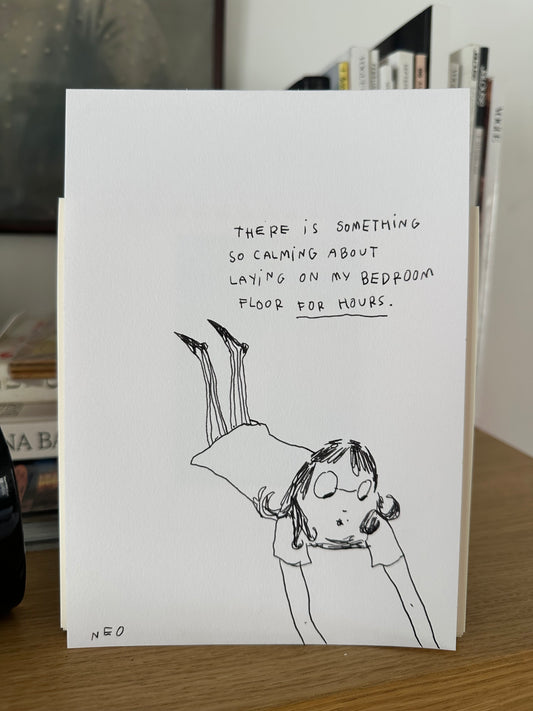 THERE IS SOMETHING
SO CALMING ABOUT
LAYING ON MY BEDROOM
FLOOR FOR HOURS.
NEO
NA BA